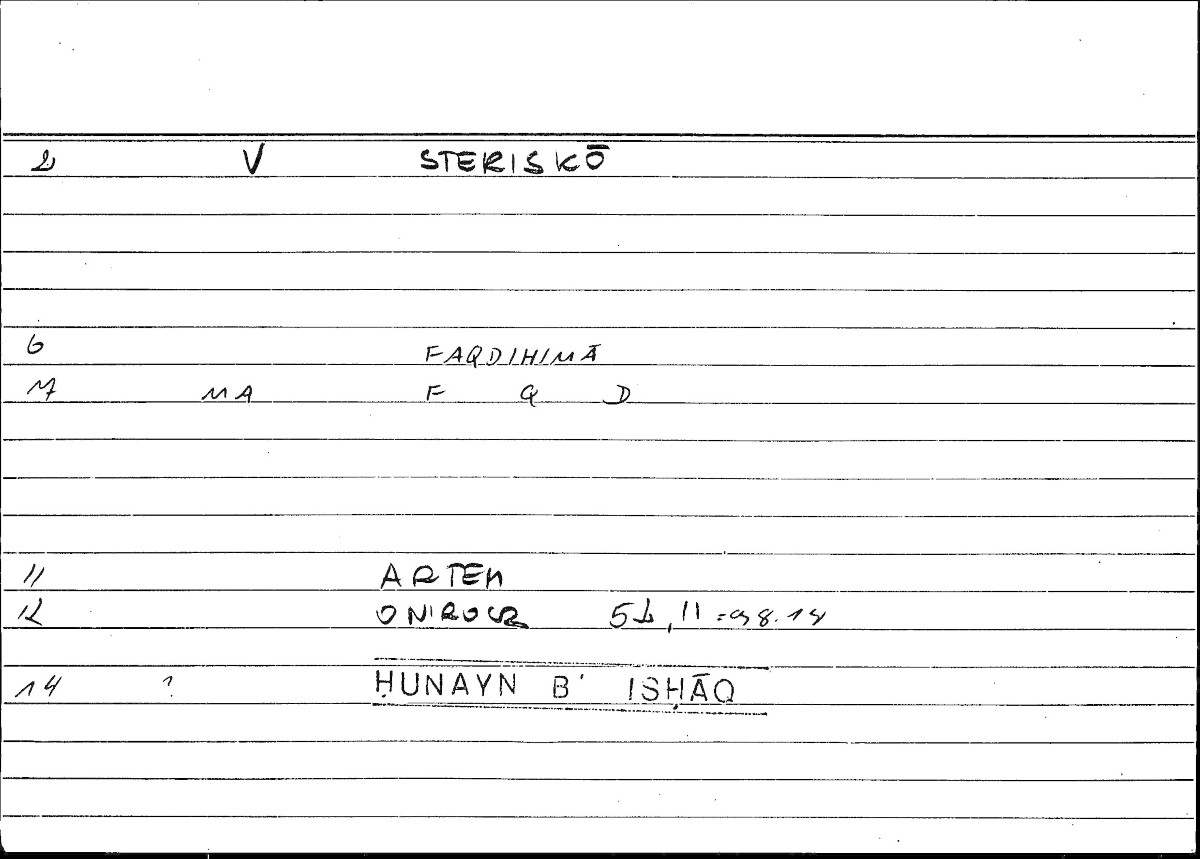 2 V STERISKŌ
6 FAQDIHIMĀ
7 MA F Q D
11 ARTEM
12 ONIROCR 51,11=98.14
14 ? ḤUNAYN B' ISḤĀQ